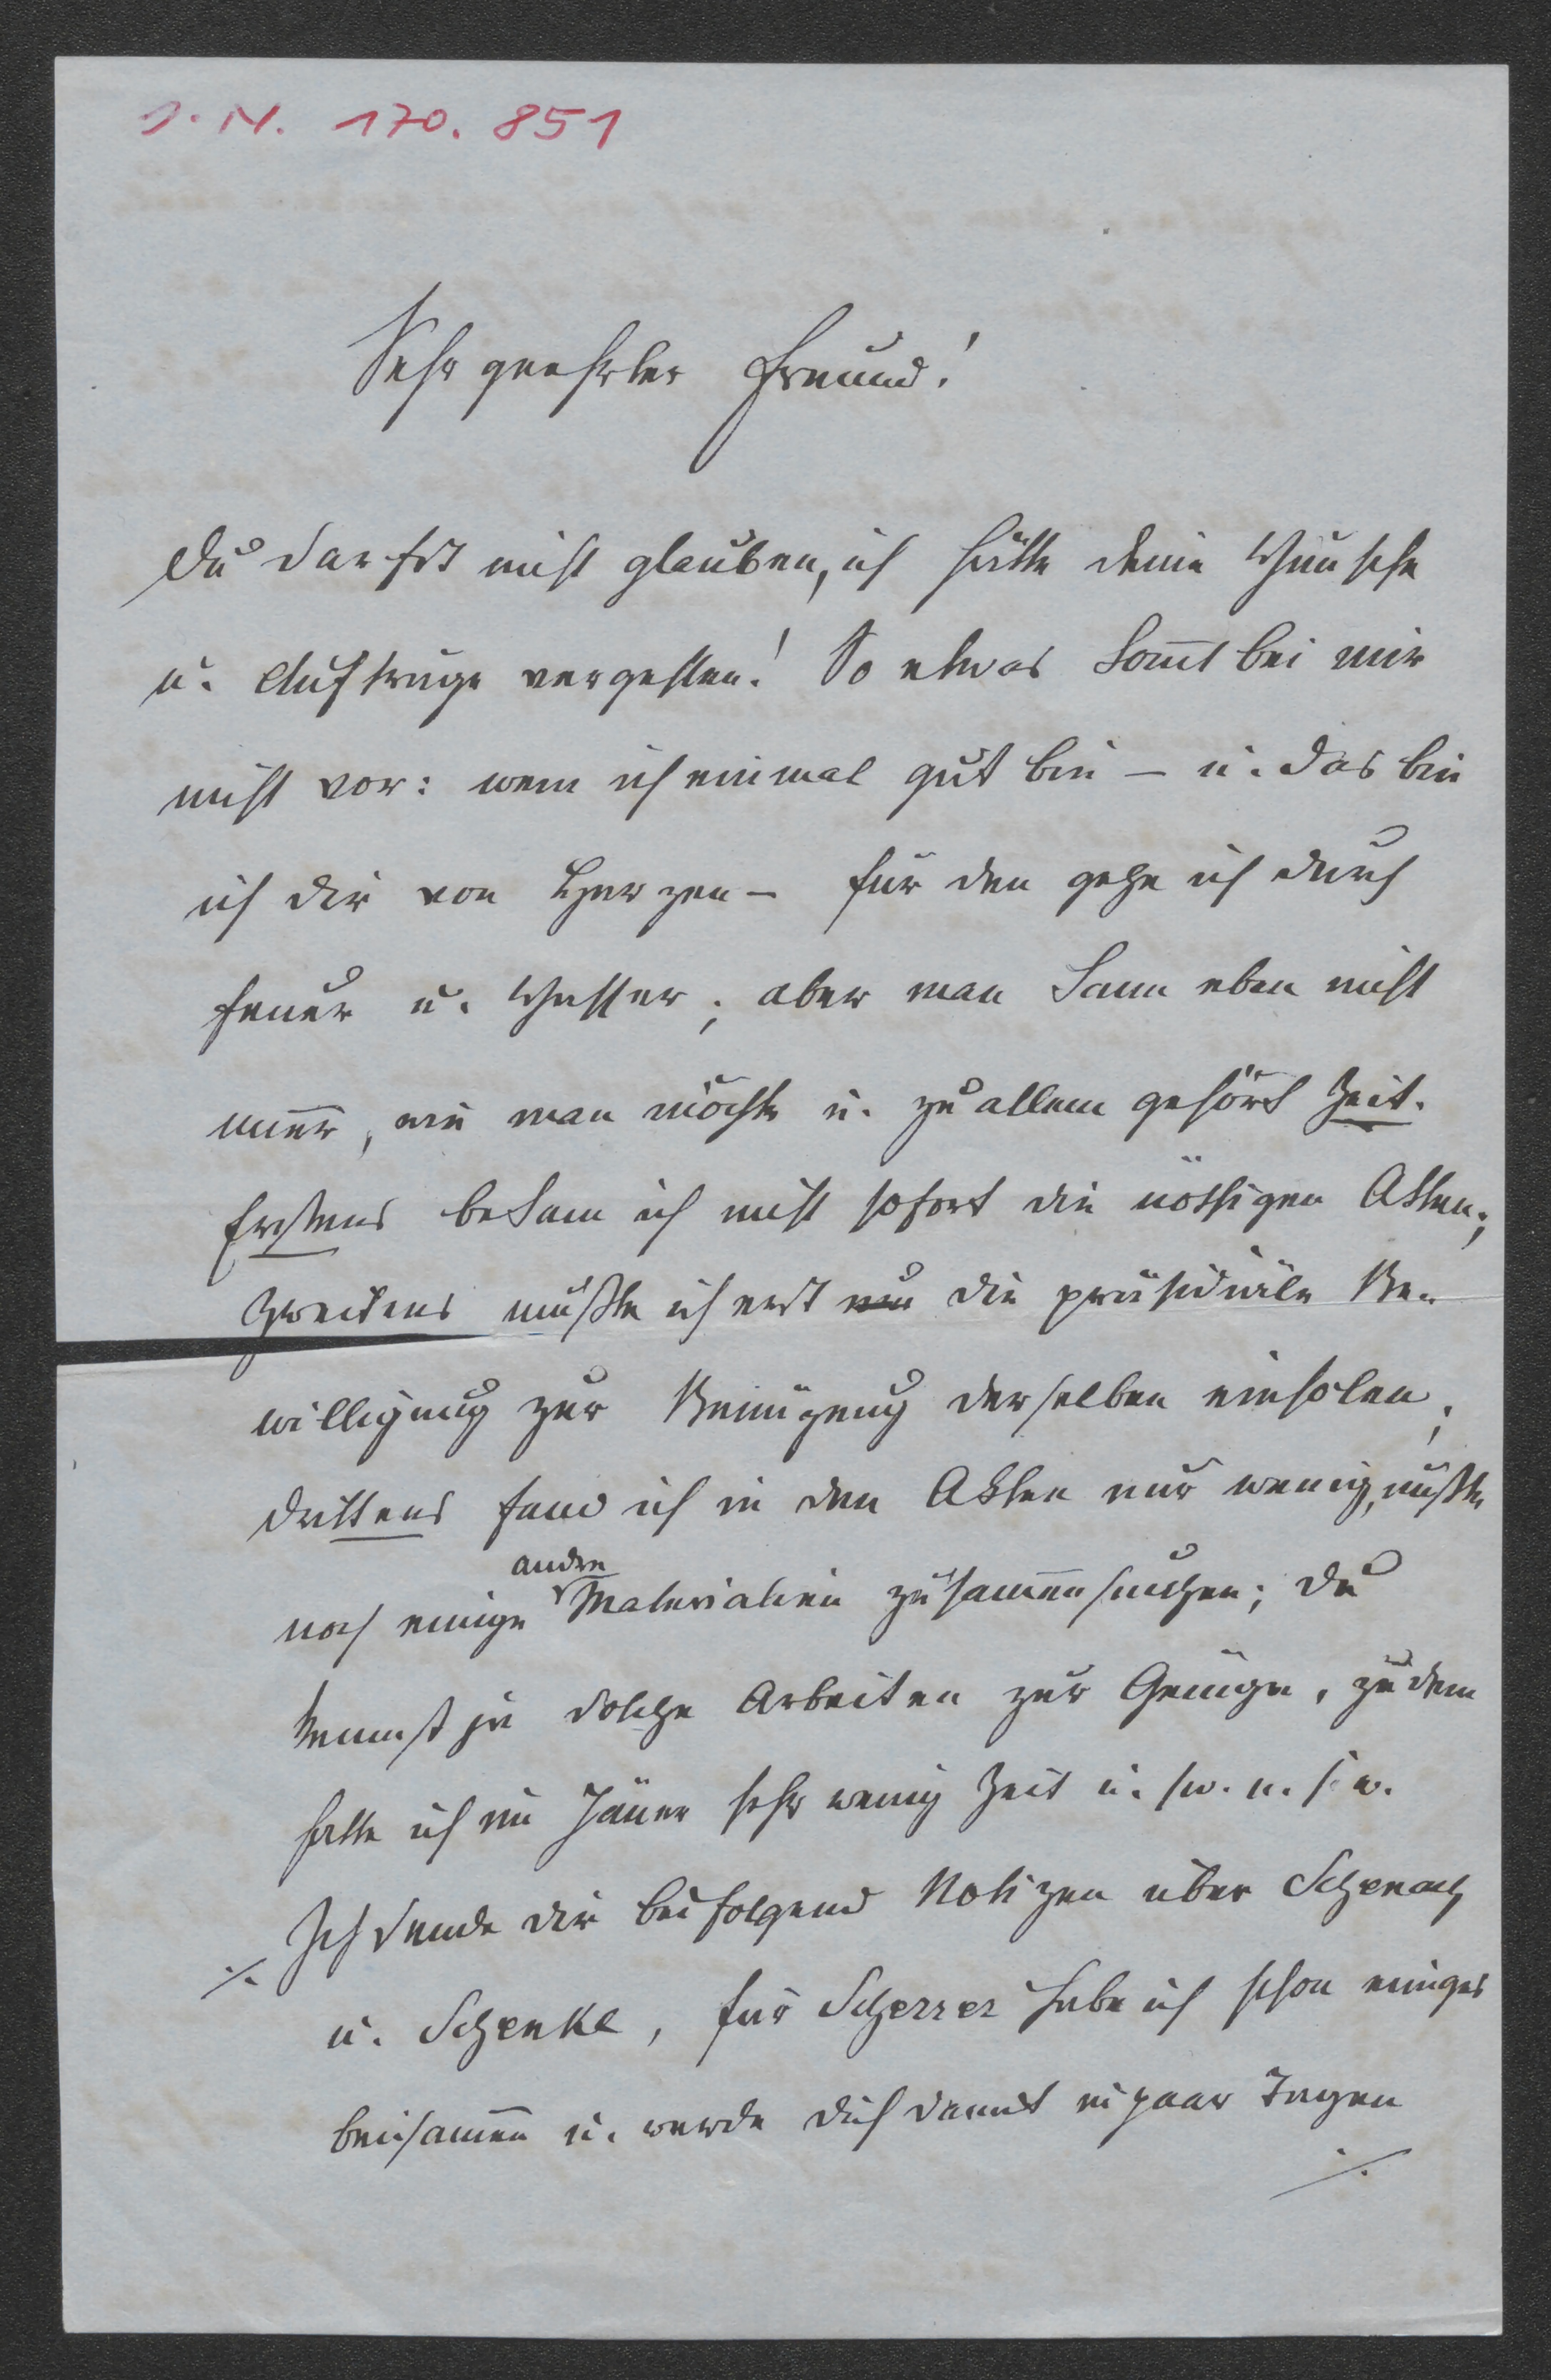 I. N. 170.851
Sehr geehrter Freund!
Du darfst nicht glauben, ich hätte deine Wünsche
u. Aufträge vergessen! So etwas kom̅t bei mir
nicht vor: wem ich einmal gut bin – u. das bin
ich dir von Herzen – für den gehe ich durch
Feuer u. Wasser; aber man kann eben nicht
im̅er, wie man möchte u. zu allem gehört Zeit.
Erstens bekam ich nicht sofort die nöthigen Akten;
Zweitens mußte ich erst um die präsidiale Be-
willigung zur Benützung derselben einholen;
drittens fand ich in den Akten nur wenig, mußte
noch einige andre Materialien zusam̅ensuchen; du
kennst ja solche Arbeiten zur Genüge, zudem
hatte ich im Jäner sehr wenig Zeit u. sw. u. s. w.
./. Ich sende dir beifolgend Notizen über Schenach
u. Schenkl, für Scherrer habe ich schon einiges
beisam̅en u. werde dich damit in paar Tagen
./.